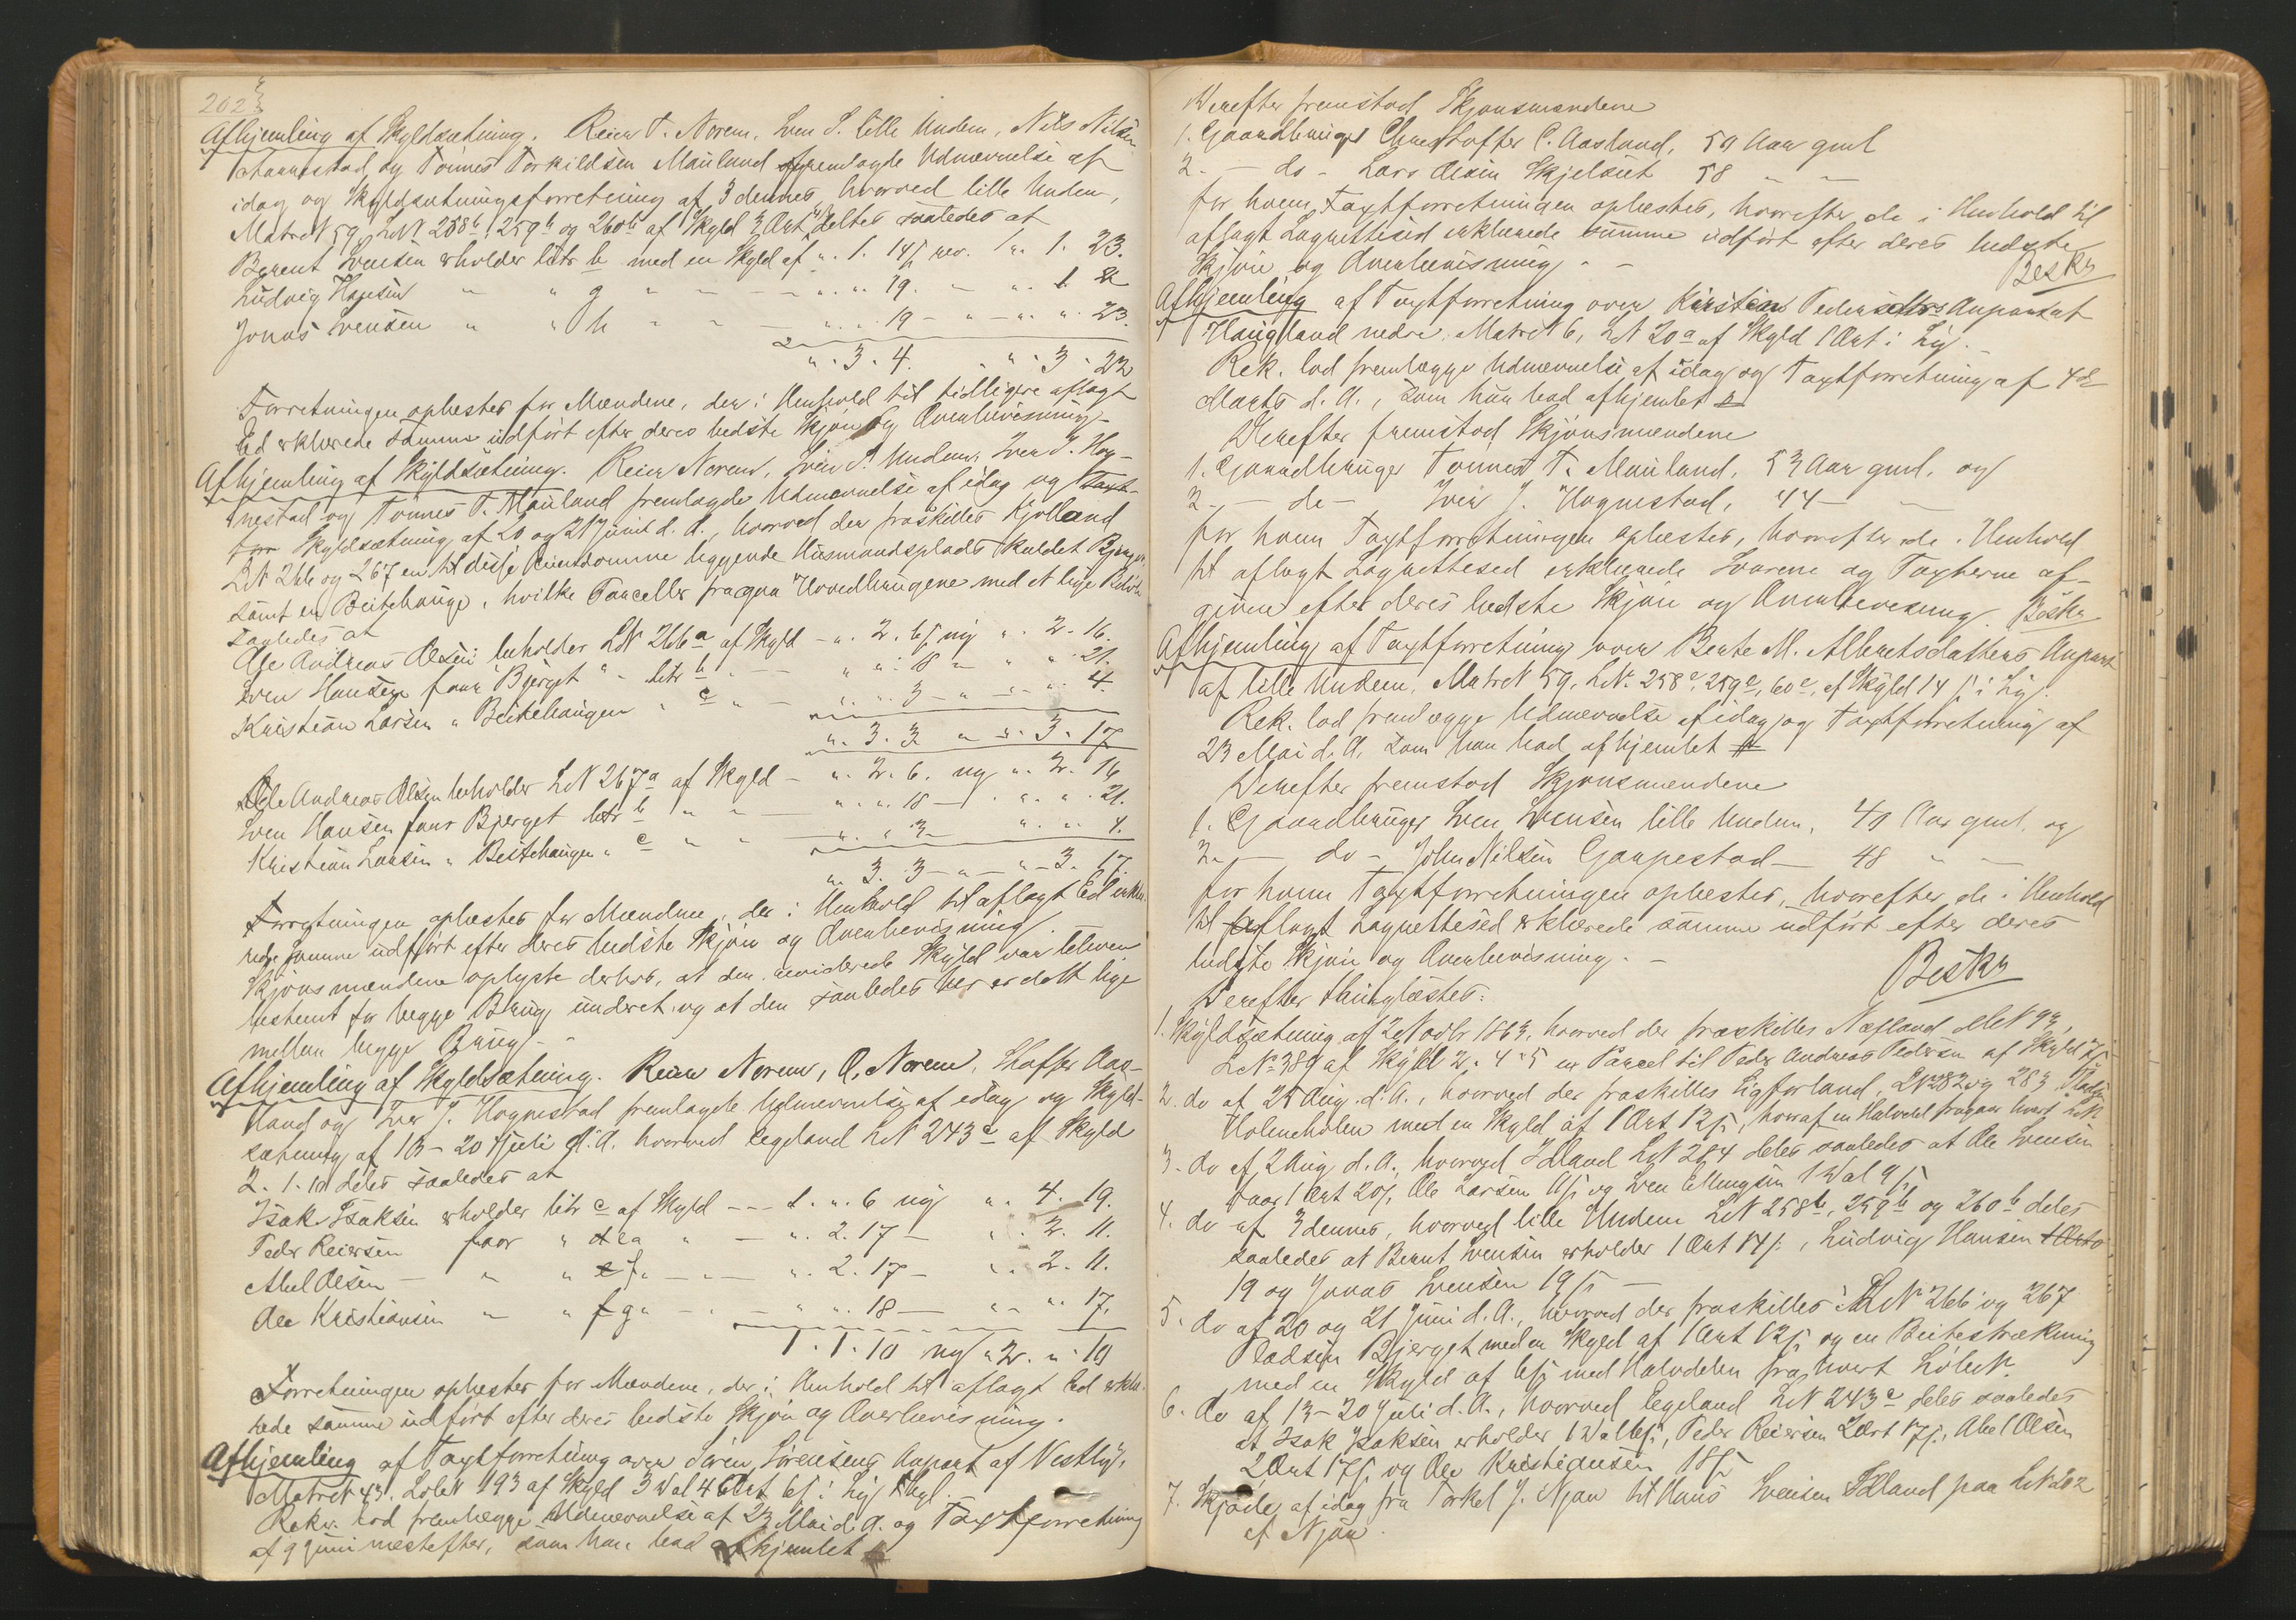 202
Afhjemling af Skyldsætning. Reier T. Norem, Sven S. lille Undem, Nils Nilsen
stad og Tönnes Torkildsen Mauland fremlagde Udnævnelse af
idag og Skyldsætningsforretning af 3 dennes, hvorved lille Undem,
MatrN 59, LN 258b, 259b og 260b af Skyld 3 Ort deltes saaledes at
Berent Svensen erholder litr b med en Skyld af " 1. 14 ß rev. " 1. 23.
Ludvig Hansen " " g " — " " 19. — "
Jonas Svensen " " h " — " " 19 — " — " " 23.
" 3. 4. " 3. 22
Forretningen oplæstes for Mændene, der i Henhold til tidligere aflagt
Ed erklærede samme udført efter deres bedste Skjön og Overbevisning
Afhjemling af Skyldsætning. Reier Norem, Sven S. Undem, Iver J. Hog-
nestad og Tönnes T. Mauland fremlagde Udnævnelse af idag og Taxt-
for Skyldsætning af 20 og 21 Juni d. A., hvorved der fraskilles Kjölland
LN 266 og 267 en til disse Eiendomme liggende Huusmandsplads kaldet Bjerget
samt en Beitehauge, hvilke Parceller fragaa Hovedbrugene med et lige Belöb
saaledes at
Ole Andreas Olsen beholder LN 266a af Skyld — " 2. 6 ß ny " 2. 16.
Sven Hansen faar "Bjerget" " litr b " — " " 18 — " " 21.
Kristian Larsen " Beitehaugen " c " — " " 3 — " — " 4.
" 3. 3 " " 3. 17
Ole Andreas Olsen beholder LN 267a af Skyld — " 2. 6. ny " 2. 16
Sven Hansen faar Bjerget litr b " " — " " 18 — " " 21.
Kristian Larsen " Beitehaugen " c " " " " 3 — " " 4.
" 3. 3 — " — " 3. 17.
Forretningen oplæstes for Mændene, der i Henhold til aflagt Ed erklæ-
rede samme udført efter deres bedste Skjön og Overbevisning.
Skjönsmændene oplyste derhos, at den reviderede Skyld var bleven
bestemt for begge Brug underet og at den saaledes her er delt lige
mellem begge Brug. -
Afhjemling af Skyldsætning. Reier Norem, O. Norem, Stoffer Aas-
land og Iver J. Hognestad fremlagde Udnævnelse af idag og Skyld-
sætning af 13 - 20 Juli d. A. hvorved Egeland LN 243c af Skyld
2. 1. 10 deles saaledes at
Isak Isaksen erholder litr c af Skyld — 1. " 6 ny " 4. 19.
Peder Reiersen faar " " — " 2. 17 — " 2. 11.
Abel Olsen — " " f " — " 2. 17 — " 2. 11.
Ole Kristiansen " " g " — " " 18 — " " 17.
1. 10 ny 2. " 10
Forretningen oplæstes for Mændene, der i Henhold til aflagt Ed erklæ-
rede samme udført efter deres bedste Skjön og Overbevisning.
Afhjemling af Taxtforretning over Sören Sörensens Anpart af Vestly,
MatrN 43, LöbeN 193 af Skyld 3 Dal 4 Ort 6 ß i Lye Thgl.
Rekv. lod fremlægge Udnævnelse af 23 Mai d. A. og Taxtforretning
af 9 Juni næstefter, som han bad afhjemlet
Derefter fremstod Skjönsmændene
1. Gaardbruger Christoffer C. Aasland, 59 Aar gml
2. — do - Lars Olsen Skjelsæt 58 " —
for hvem Taxtforretningen oplæstes, hvorefter de i Henhold til
aflagt Laugrettesed erklærede samme udført efter deres bedste
Skjön og Overbevisning. —
Besk
Afhjemling af Taxtforretning over Kirstine Pedersdatters Anpart af
Haugland nedre, MatrN 6, LN 20a af Skyld 1 Ort i Ly.
Rek. lod fremlægge Udnævnelse af idag og Taxtforretning af 4de
Marts d. A., som han bad afhjemlet
Derefter fremstod Skjönsmændene
1. Gaardbruger Tönnes T. Mauland, 53 Aar gml. og
2. — do — Iver J. Hognestad, 44 — —
for hvem Taxtforretningen oplæstes, hvorefter de i Henhold
til aflagt Laugrettesed erklærede Svarene og Taxterne af-
givne efter deres bedste Skjön og Overbevisning. Besk
Afhjemling af Taxtforretning over Berte M. Albretsdatters Anpart
af lille Undem, MatrN 59, LN. 258c, 259c, 60c, af Skyld 14 ß i Ly.
Rek. lod fremlægge Udnævnelse af idag og Taxtforretning af
23 Mai d. A. som han bad afhjemlet
Derefter fremstod Skjönsmændene
1. Gaardbruger Sven Svensen lille Undem, 49 Aar gml. og
2. — do — John Nilsen Garpestad — 48 " —
for hvem Taxtforretningen oplæstes, hvorefter de i Henhold
til aflagt Laugrettesed erklærede samme udført efter deres
bedste Skjön og Overbevisning. —
Besk
Derefter thinglæstes:
1. Skyldsætning af 2 Novbr 1863, hvorved der fraskilles Næsland MN 93,
LN 389 af Skyld 2. 4. 5 en Parcel til Peder Andreas Pedersen af Skyld
2. do af 25 Aug. d. A., hvorved der fraskilles Eigforland, LN 282 og 283 Pladsen
Holmeholen med en Skyld af 1 Ort 12 ß, hvoraf en Halvdel fragaar hvert LN
3. do af 2 Aug d. A., hvorved Idland LN 284 deles saaledes at Ole Svensen
faar 1 Ort 20 ß, Ole Larsen ß og Sven Ellingsen 1 Dal 9 ß
4. do af 3 dennes, hvorved lille Undem LN 258b, 259b og 260b deles
saaledes at Bernt Svensen erholder 1 Ort 14 ß, Ludvig Hansen 1 Ort
19 og Jonas Svensen 19 ß —
5. do af 20 og 21 Juni d. A., hvorved der fraskilles LN 266 og 267
Pladsen Bjerget med en Skyld af 1 Ort 12 ß og en Beitestrækning
med en Skyld af 6 ß med Halvdelen fra hvert LöbeN.
6. do af 13-20 Juli d. A., hvorved Egeland LN 243c deles saaledes
at Isak Isaksen erholder 1 Dal 6 ß, Peder Reiersen 2 Ort 17 ß, Abel Olsen
2 Ort 17 ß og Ole Kristiansen 18 ß
7. Skjöde af idag fra Torkel J. Njaa til Hans Svensen Idland paa LN 202
af Njaa.